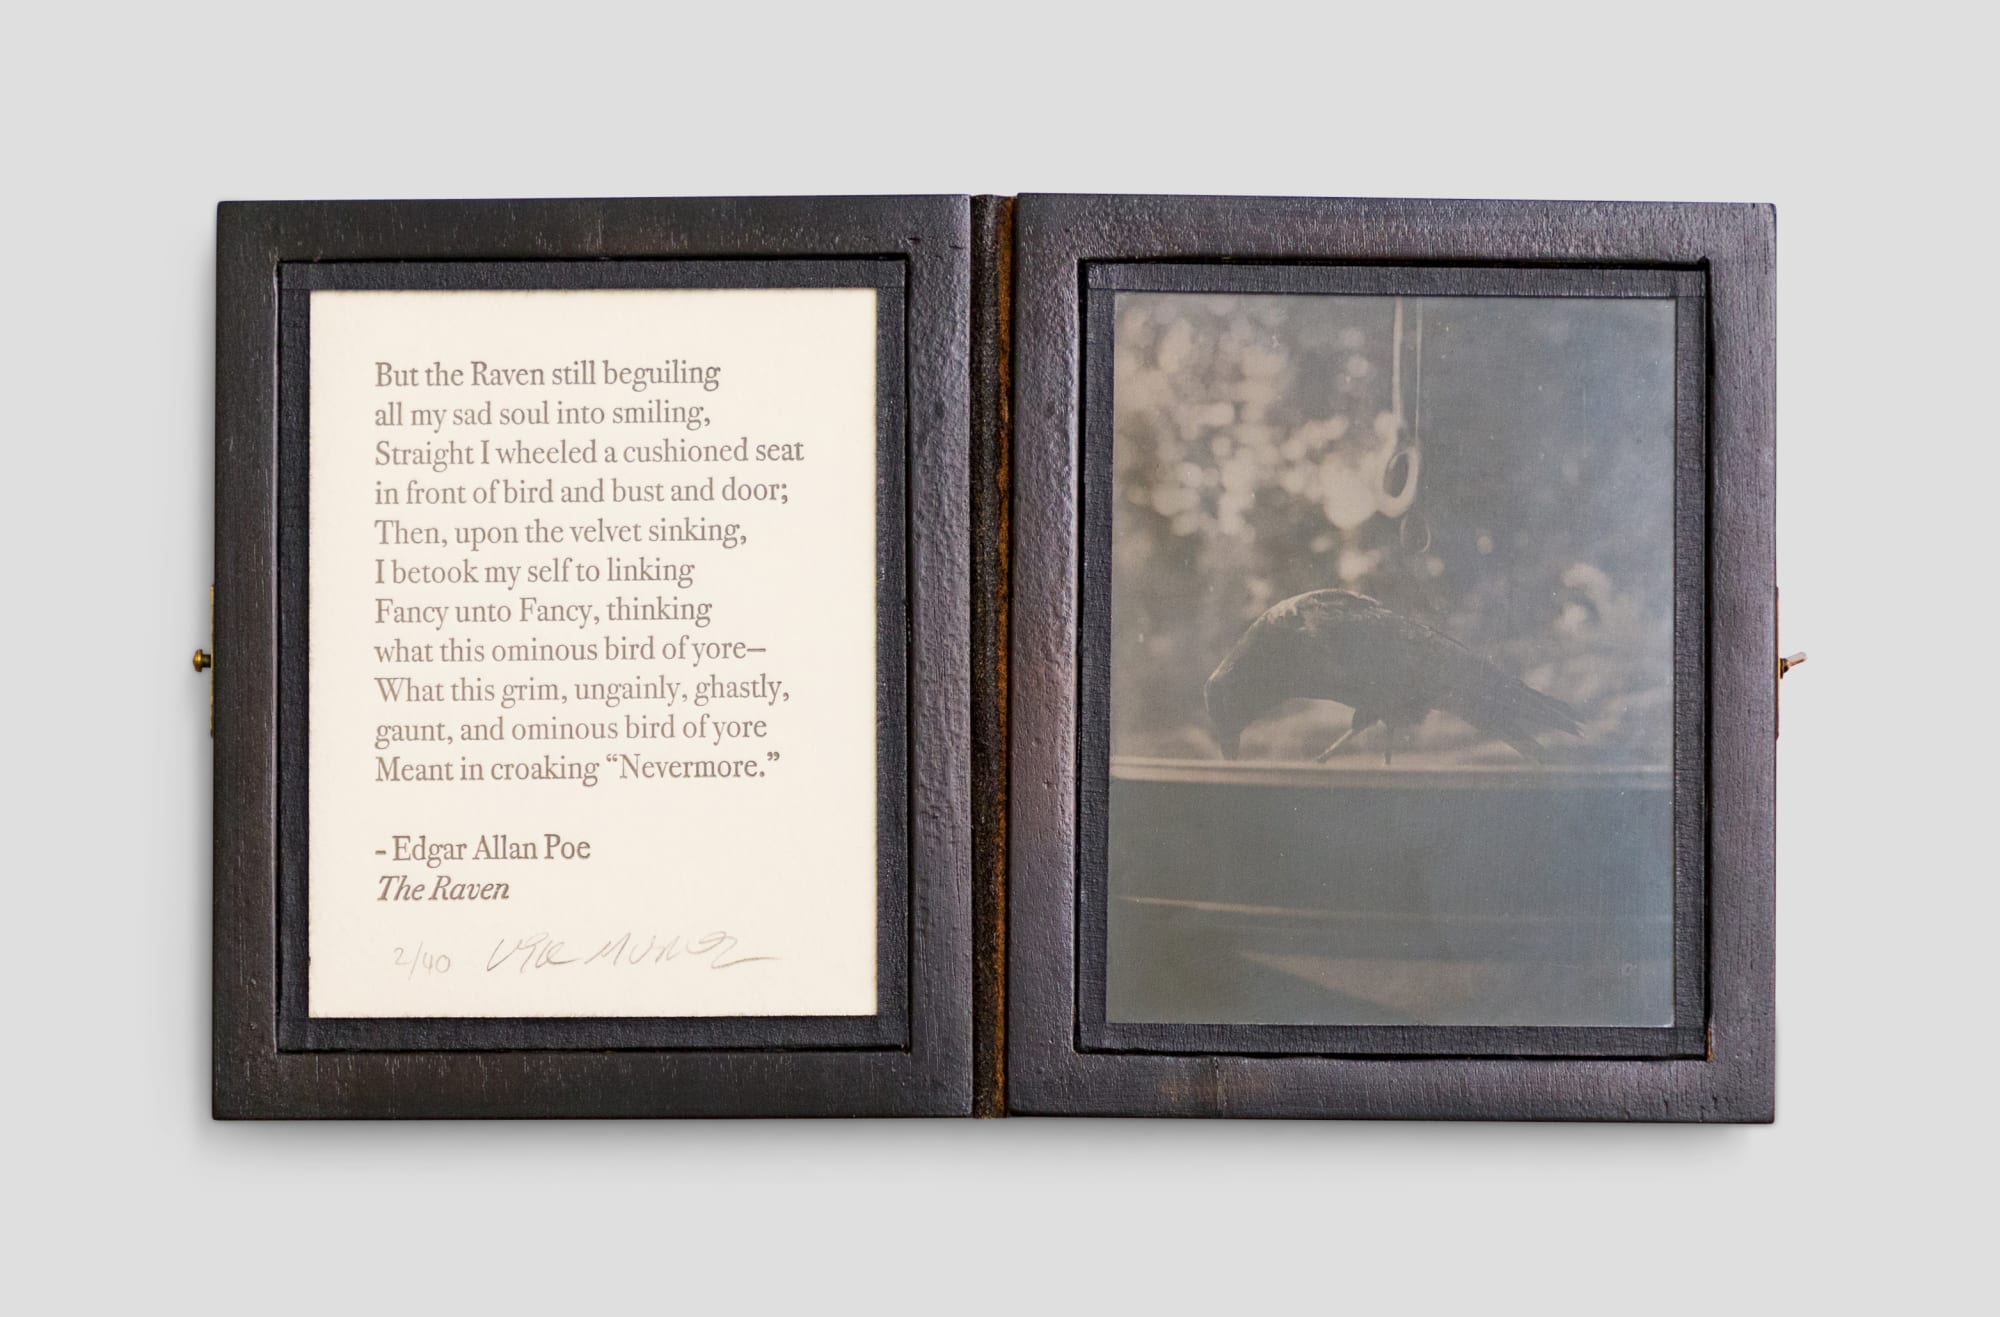 But the Raven still beguiling
all my sad soul into smiling,
Straight I wheeled a cushioned seat
in front of bird and bust and door;
Then, upon the velvet sinking,
I betook my self to linking
Fancy unto Fancy, thinking
what this ominous bird of yore—
What this grim, ungainly, ghastly,
gaunt, and ominous bird of yore
Meant in croaking “Nevermore.”
- Edgar Allan Poe
The Raven
2/40